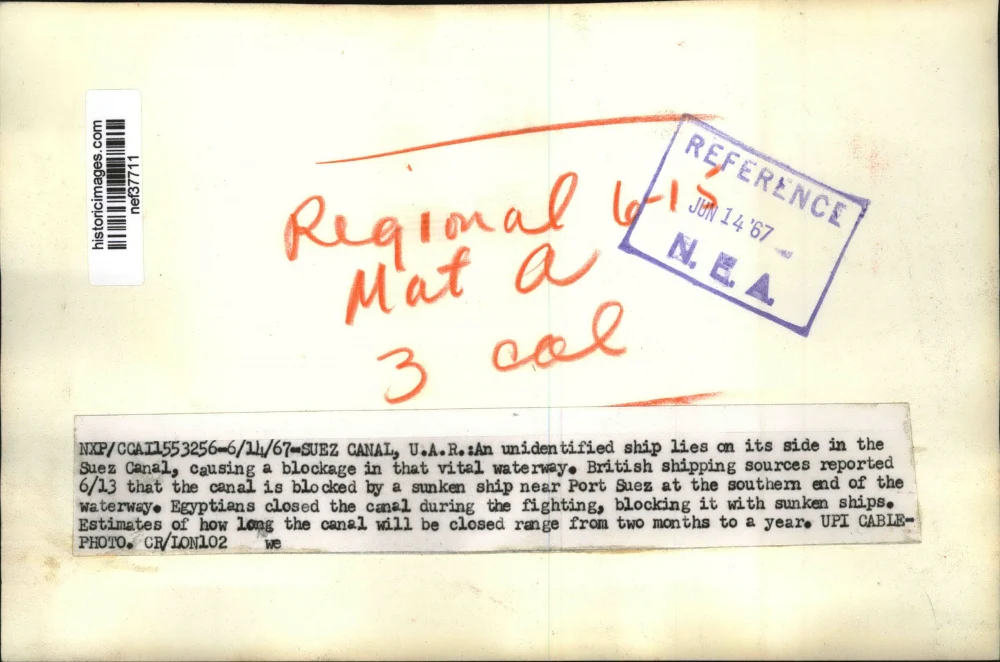 historicimages.com
nef37711
Regional 6-15
Mat a
3 col
REFERENCE
JUN 14 '67
N. E. A.
NXP/CCAI1553256-6/14/67-SUEZ CANAL, U.A.R.:An unidentified ship lies on its side in the
Suez Canal, causing a blockage in that vital waterway. British shipping sources reported
6/13 that the canal is blocked by a sunken ship near Port Suez at the southern end of the
waterway. Egyptians closed the canal during the fighting, blocking it with sunken ships.
Estimates of how long the canal will be closed range from two months to a year. UPI CABLE-
PHOTO. CR/LON102 we